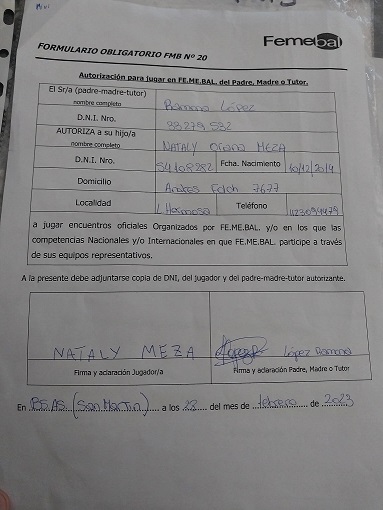 Femebal
FORMULARIO OBLIGATORIO FMB Nº 20
Autorización para jugar en FE.ME.BAL. del Padre, Madre o Tutor.
El Sr/a (padre-madre-tutor)
nombre completo
Ramona López
D.N.I. Nro.
AUTORIZA a su hijo/a
nombre completo
NATALY Oriana MEZA
D.N.I. Nro.
54108282
Fcha. Nacimiento
10/12/2014
Domicilio
Andres Folch 7677
Localidad
Hermosa
Teléfono
a jugar encuentros oficiales Organizados por FE.ME.BAL. y/o en los que las
competencias Nacionales y/o Internacionales en que FE.ME.BAL. participe a través
de sus equipos representativos.
A la presente debe adjuntarse copia de DNI, del jugador y del padre-madre-tutor autorizante.
NATALY MEZA López Ramona
Firma y aclaración Jugador/a Firma y aclaración Padre, Madre o Tutor
En BS.AS. (San Martin) a los 28 del mes de febrero de 2023